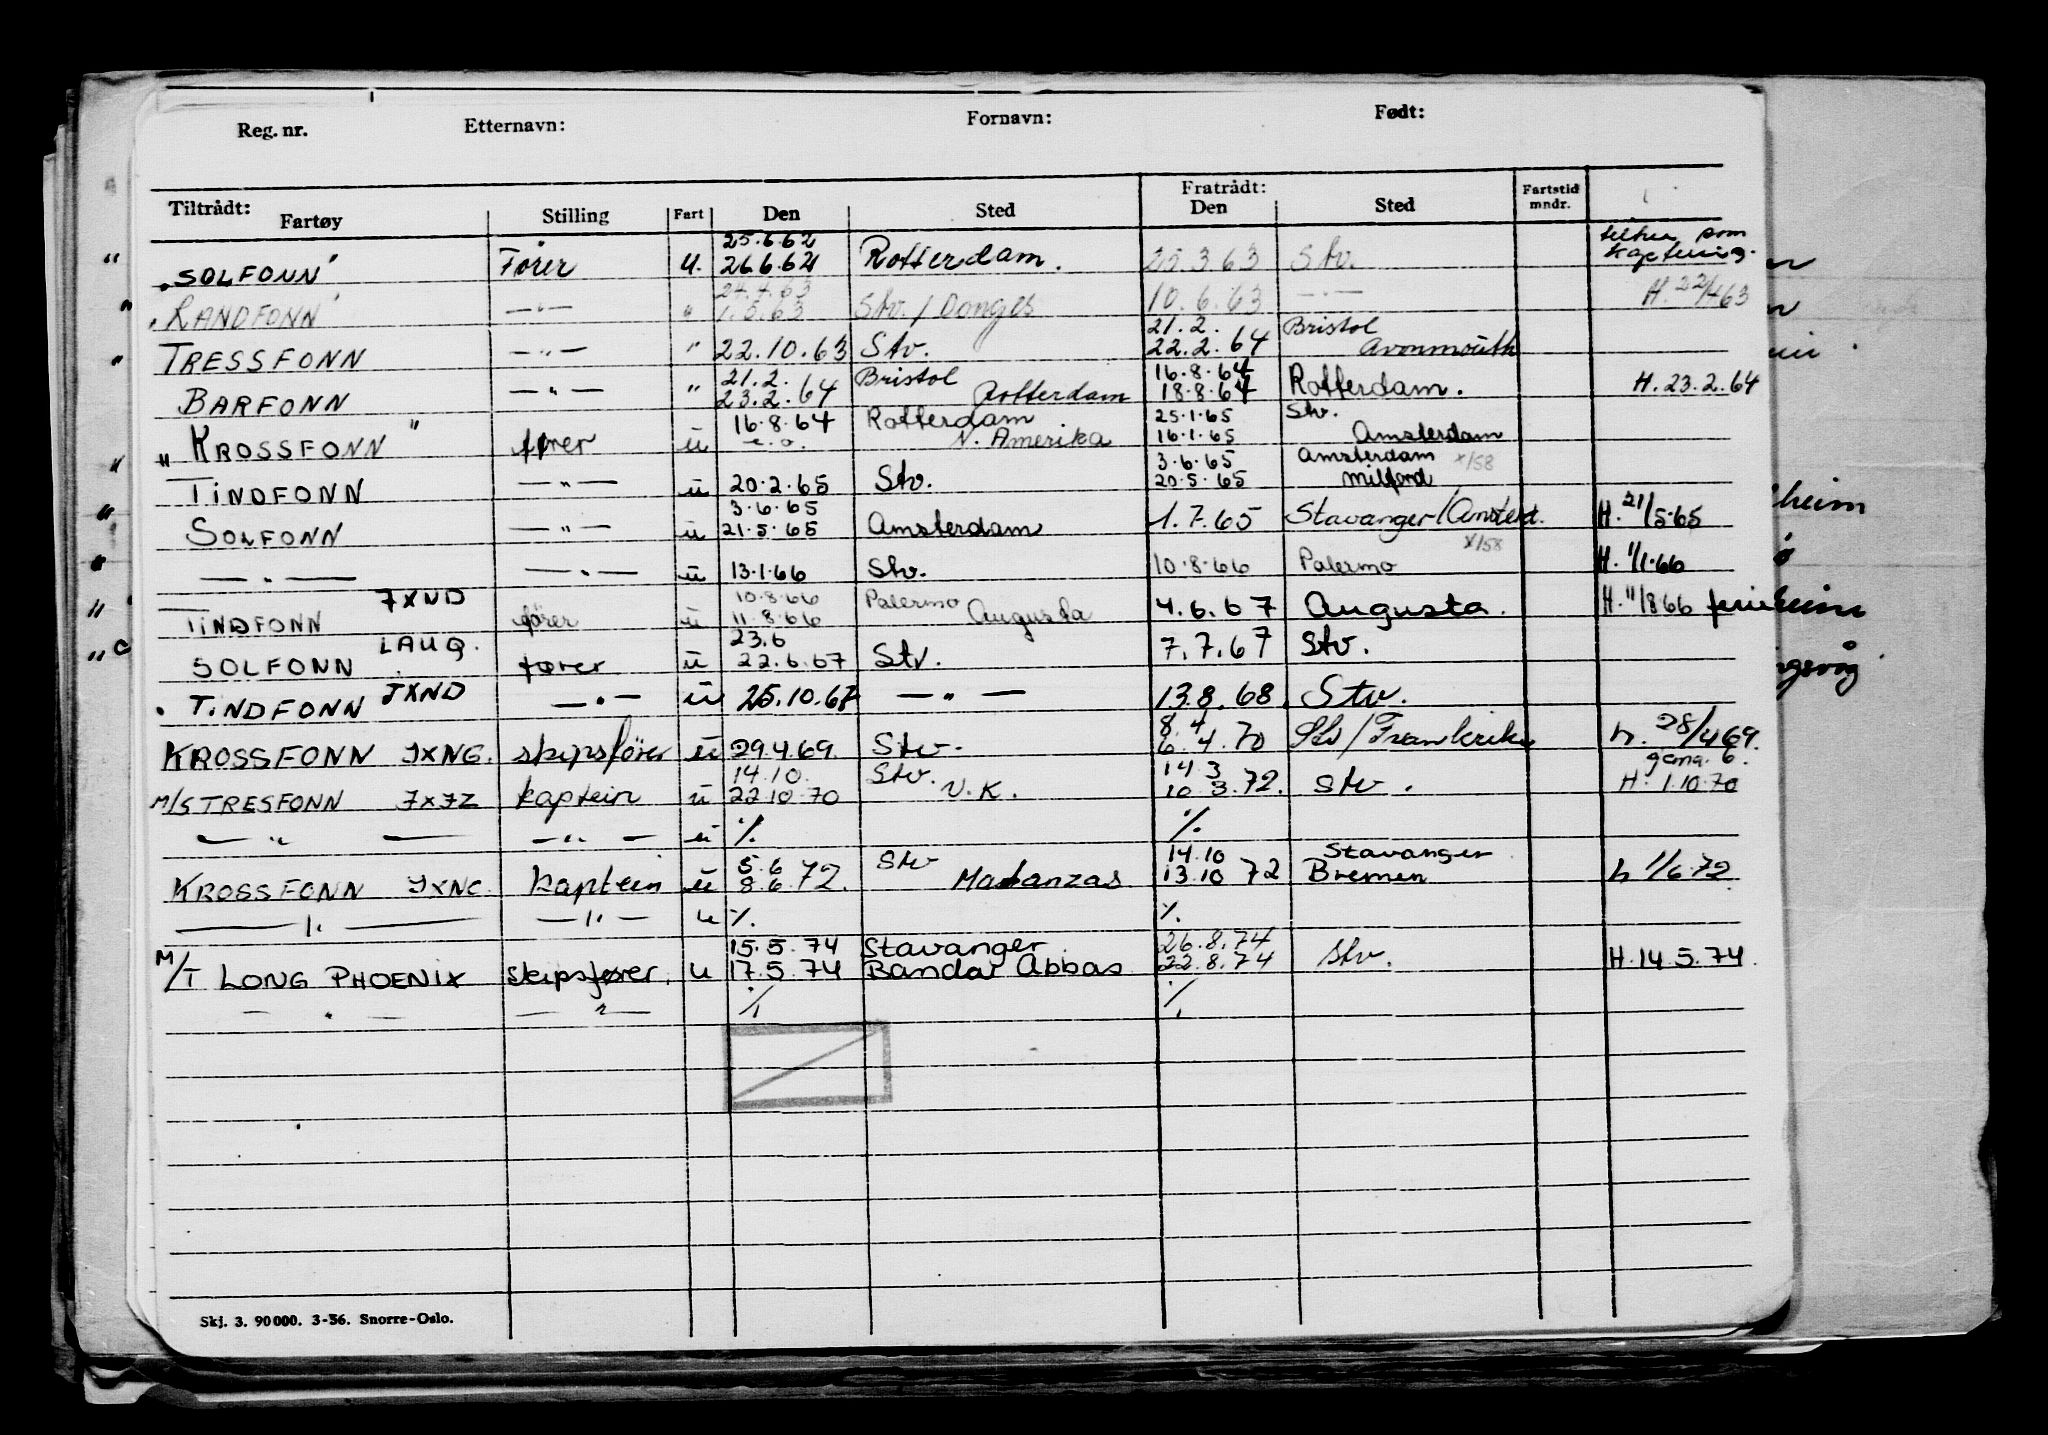 Reg. nr. Etternavn: Fornavn: Født:
Tiltrådt: Fratrådt: Fartstid
Fartøy Stilling Fart Den Sted Den Sted mndr.
25.6.62
"SOLFONN" Fører u. 26.6.62 Rotterdam. 25.3.63 Stv. kapt
24.4.63
"RANDFONN" —"— " 1.5.63 Stv. / Donges 10.6.63 —"— H. 22/4 63
21.2. Bristol
TRESSFONN —"— " 22.10.63 Stv. 22.2.64 Avonmouth
21.2. Bristol 16.8.64
BARFONN —"— " 23.2.64 Rotterdam 18.8.64 Rotterdam. H. 23.2.64
16.8.64 Rotterdam 25.1.65 Stv.
"KROSSFONN" fører u e.o. N. Amerika 16.1.65 Amsterdam
3.6.65 Amsterdam x/58
TINDFONN —"— u 20.2.65 Stv. 20.5.65 Milford
3.6.65
SOLFONN —"— u 21.5.65 Amsterdam 1.7.65 Stavanger/Amsterd. H. 21/5.65
x/58
—"— —"— u 13.1.66 Stv. 10.8.66 Palermo H. 1/1.66
JXND 10.8.66 Palermo
TINDFONN fører u 11.8.66 Augusta 4.6.67 Augusta. H. 11/8.66
LAUQ. 23.6
SOLFONN fører u 22.6.67 Stv. 7.7.67 Stv.
TINDFONN JXND —"— u 25.10.67 —"— 13.8.68 Stv.
8.4
KROSSFONN JXNG. skipsfører u 29.4.69. Stv. 6.4.70 Stv / Frankrike h. 28/4 69.
14.10. Stv. 14.3
M/S TRESFONN JXJZ kaptein u 22.10.70 N.K. 10.3.72. Stv. H. 1.10.70
—"— —"— u ٪. ٪.
5.6 Stv 14.10 Stavanger
KROSSFONN JXNC. kaptein u 8.6.72. Matanzas 13.10 72 Bremen h 1/6 72
—"— —"— u ٪. ٪.
15.5.74 Stavanger 26.8.74
M/T LONG PHOENIX skipsfører. u 17.5.74 Bandar Abbas 22.8.74 Stv. H. 14.5.74.
—"— —"— ٪. ٪.
Skj. 3. 90000. 3-56. Snorre-Oslo.